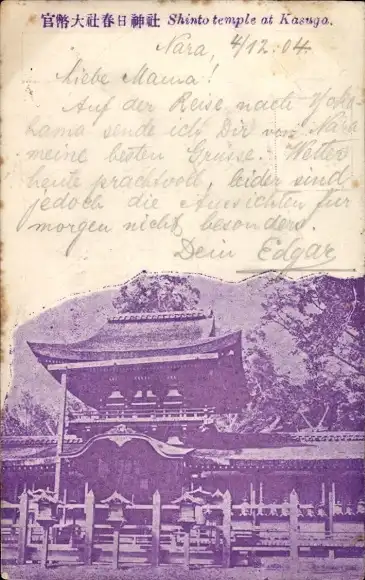 官幣大社春日神社 Shinto temple at Kasuga.
Nara, 4/12.04.
Liebe Mama!
Auf der Reise nach Yoko-
hama sende ich Dir von Nara
meine besten Grüsse. Wetter
heute prachtvoll, leider sind
jedoch die Aussichten für
morgen nicht besonders.
Dein Edgar